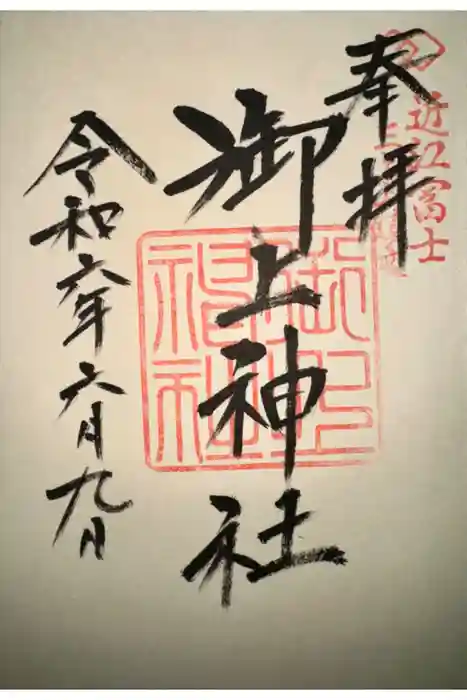 近江富士
奉拝
御上神社
令和六年六月九日